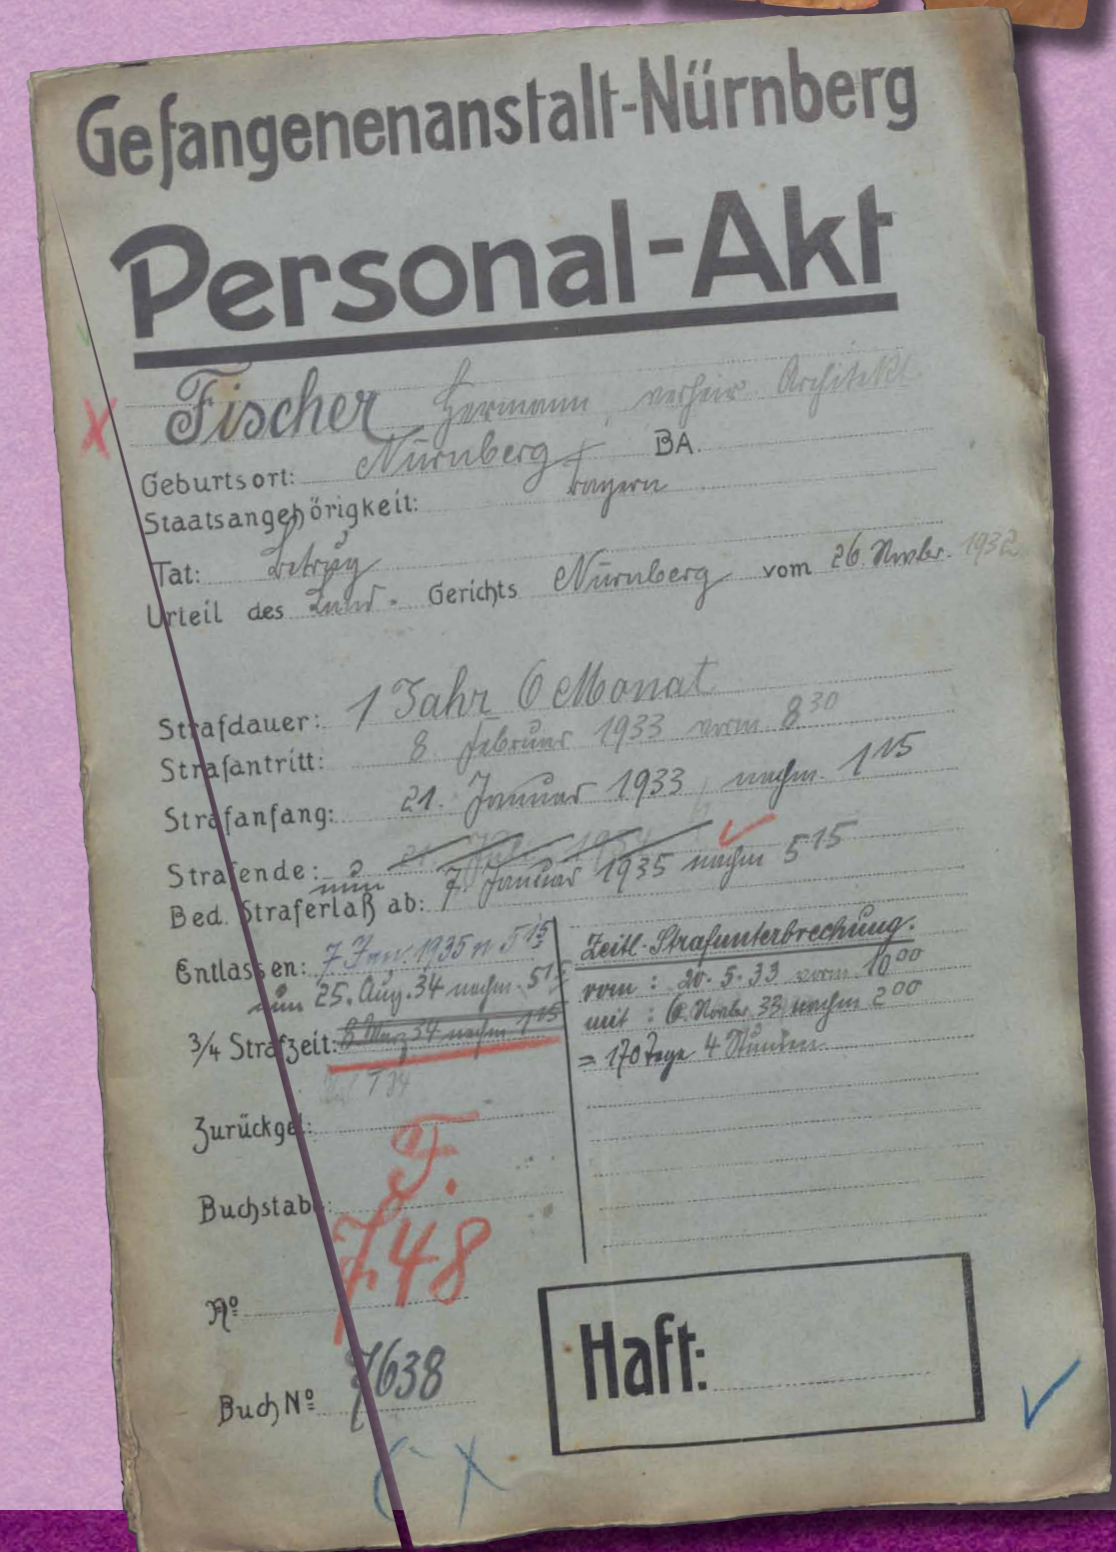 Gefangenenanstalt-Nürnberg
Personal-Akt
Fischer Hermann, verheir. Architekt
Geburtsort: Nürnberg BA.
Staatsangehörigkeit: Bayern
Tat: Betrug
Urteil des Land- Gerichts Nürnberg vom 26. Novbr. 1932
Strafdauer: 1 Jahr 6 Monat
Strafantritt: 8. Februar 1933 vorm 8³⁰
Strafanfang: 21. Januar 1933, nachm. 1¹⁵
Strafende: 21. Juli 1934
nun 7. Januar 1935 nachm 5¹⁵
Bed. Straferlaß ab:
Entlassen: 7. Jan. 1935 n. 5¹⁵
nun 25. Aug. 34 nachm. 5¹⁵
3/4 Strafzeit: 8. März 34 nachm 1¹⁵
Zurückgel.:
Buchstabe: F.
Nº 748
Buch Nº 7638
Zeitl. Strafunterbrechung.
vom: 20.5.33 vorm 10⁰⁰
mit: 6. Novbr. 33 nachm 2⁰⁰
= 170 Tage 4 Stunden.
Haft: